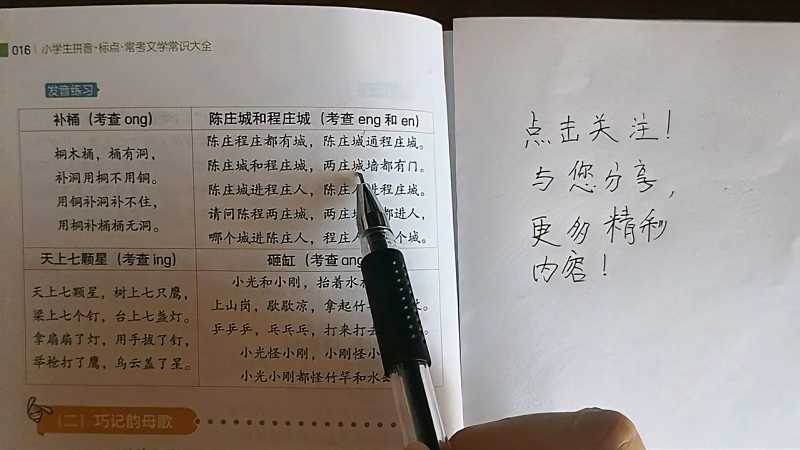 016 小学生拼音·标点·常考文学常识大全
发音练习
补桶（考查 ong）
桐木桶，桶有洞，
补洞用桐不用铜。
用铜补洞补不住，
用桐补桶桶无洞。
陈庄城和程庄城（考查 eng 和 en）
陈庄程庄都有城，陈庄城通程庄城。
陈庄城和程庄城，两庄城墙都有门。
陈庄城进程庄人，陈庄人进程庄城。
请问陈程两庄城，两庄城都进人，
哪个城进陈庄人，程庄人个城。
天上七颗星（考查 ing）
天上七颗星，树上七只鹰，
梁上七个钉，台上七盏灯。
拿扇扇了灯，用手拔了钉，
举枪打了鹰，乌云盖了星。
砸缸（考查 ang
小光和小刚，抬着水
上山岗，歇歇凉，拿起竹
乒乒乒，乓乓乓，打来打
小光怪小刚，小刚怪小
小光小刚都怪竹竿和水
（二）巧记韵母歌
点击关注！
与您分享，
更多精彩
内容！